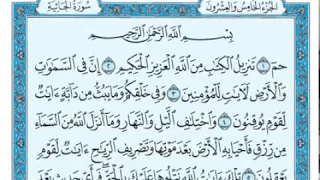 الجزء الخامس والعشرون
سورة الجاثية
بِسْمِ اللَّهِ الرَّحْمَٰنِ الرَّحِيمِ
حمٓ ١ تَنزِيلُ الْكِتَٰبِ مِنَ اللَّهِ الْعَزِيزِ الْحَكِيمِ ٢ إِنَّ فِى السَّمَٰوَٰتِ
وَالْأَرْضِ لَءَايَٰتٍ لِّلْمُؤْمِنِينَ ٣ وَفِى خَلْقِكُمْ وَمَا يَبُثُّ مِن دَآبَّةٍ ءَايَٰتٌ
لِّقَوْمٍ يُوقِنُونَ ٤ وَاخْتِلَٰفِ الَّيْلِ وَالنَّهَارِ وَمَآ أَنزَلَ اللَّهُ مِنَ السَّمَآءِ
مِن رِّزْقٍ فَأَحْيَا بِهِ الْأَرْضَ بَعْدَ مَوْتِهَا وَتَصْرِيفِ الرِّيَٰحِ ءَايَٰتٌ لِّقَوْمٍ
يَعْقِلُونَ ٥ تِلْكَ ءَايَٰتُ اللَّهِ نَتْلُوهَا عَلَيْكَ بِالْحَقِّ فَبِأَىِّ حَدِيثٍ بَعْدَ